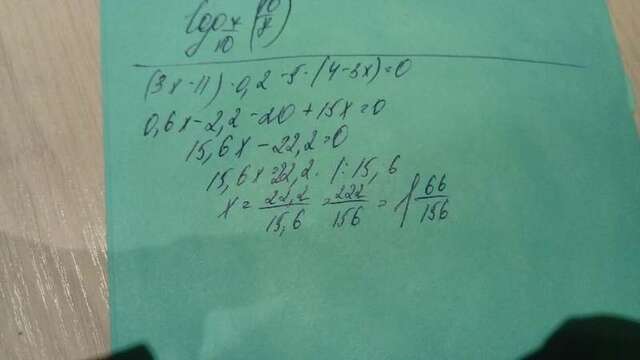 (3x-11)·0,2-5·(4-3x)=0
0,6x-2,2-20+15x=0
15,6x-22,2=0
15,6x=22,2 · |:15,6
x=22,2/15,6=222/156=1 66/156